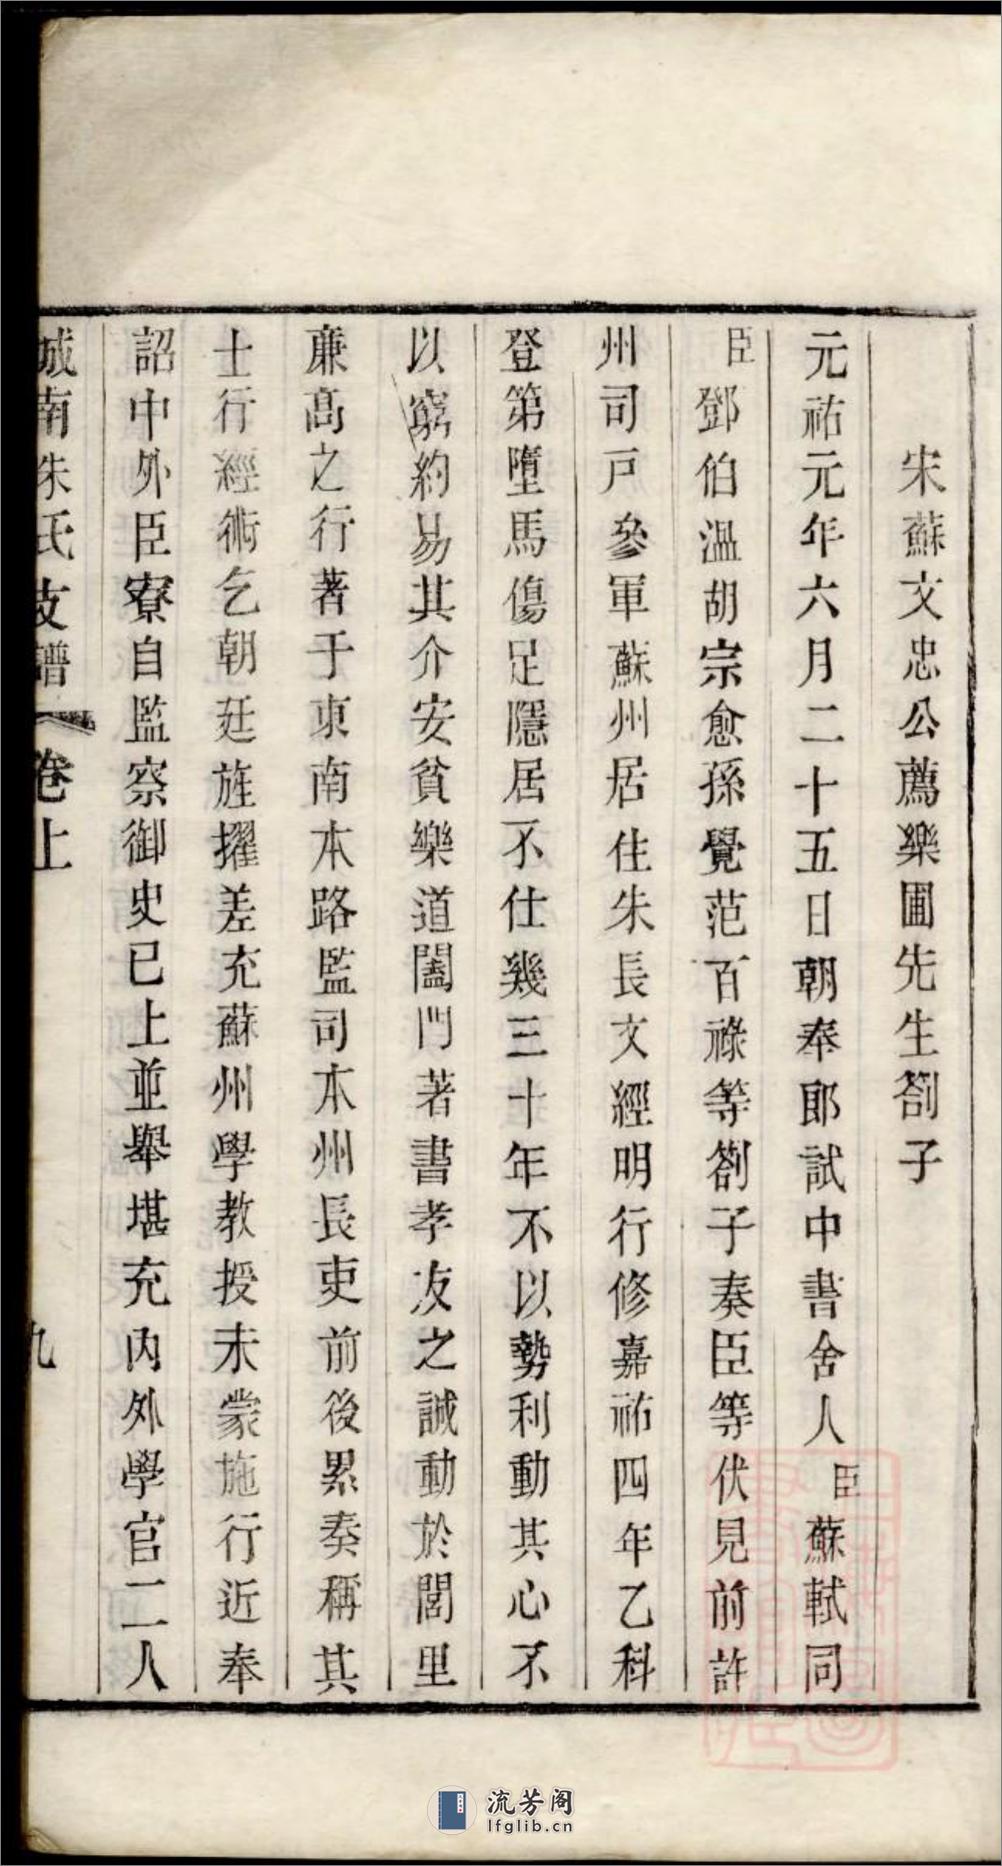 宋蘇文忠公薦樂圃先生劄子
元祐元年六月二十五日朝奉郎試中書舍人臣蘇軾同
臣鄧伯溫胡宗愈孫覺范百祿等劄子奏臣等伏見前許
州司戸參軍蘇州居住朱長文經明行修嘉祐四年乙科
登第墮馬傷足隱居不仕幾三十年不以勢利動其心不
以窮約易其介安貧樂道闔門著書孝友之誠動於閭里
廉高之行著于東南本路監司本州長吏前後累奏稱其
士行經術乞朝廷旌擢差充蘇州學教授未蒙施行近奉
詔中外臣寮自監察御史已上並舉堪充內外學官二人
城南朱氏支譜 卷上 九
流芳阁
lfglib.cn